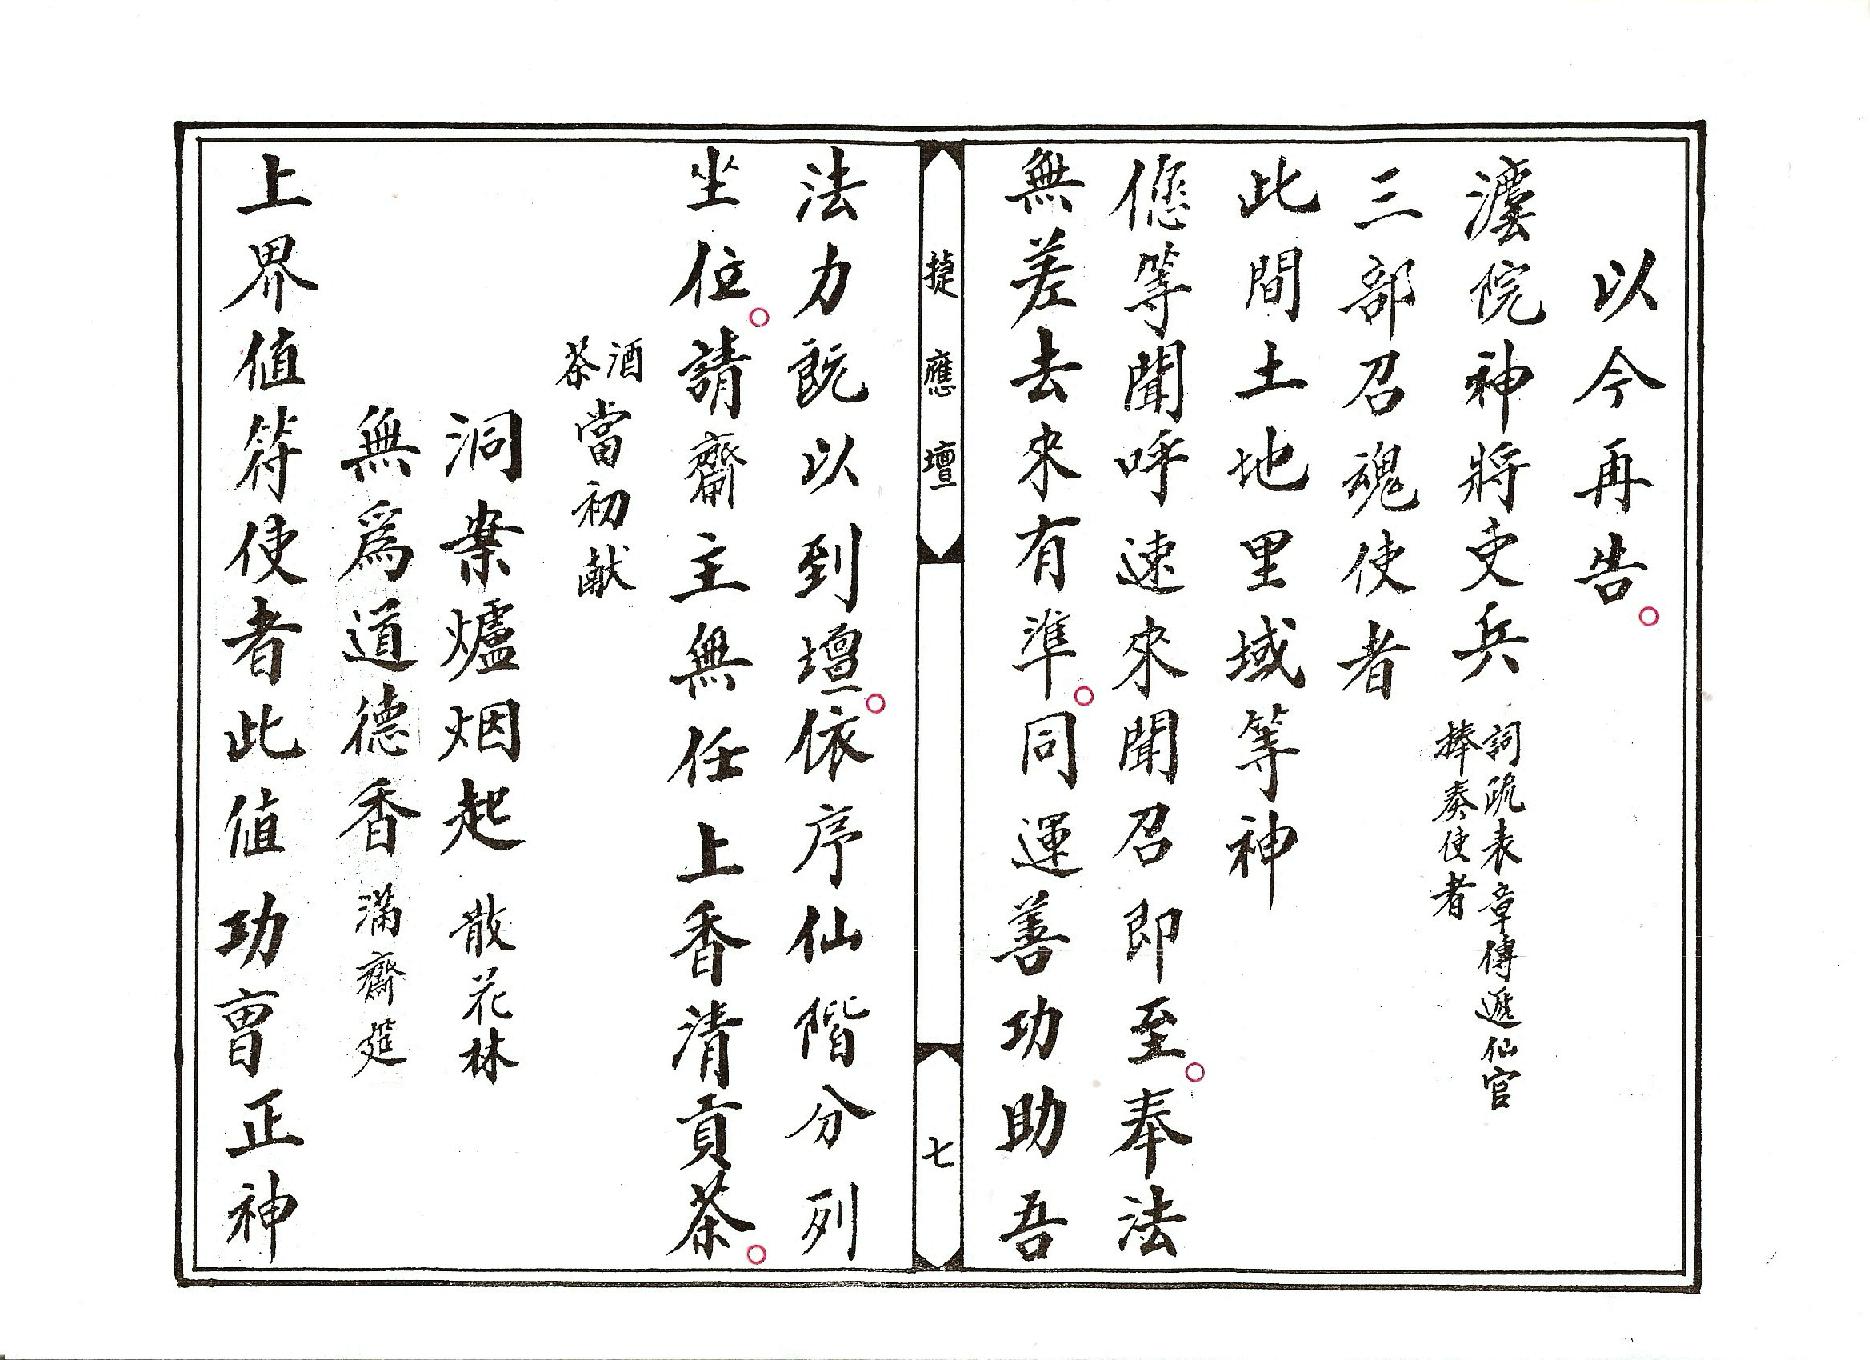 以今再告。
澐院神將吏兵 詞疏表章傳遞仙官 捧奏使者
三部召魂使者
此間土地里域等神
偬等聞呼速來聞召即至。奉法
無差去來有準。同運善功助吾
捷應壇 七
法力既以到壇。依序仙階分列
坐位。請齋主無任上香清貢茶。
酒茶當初献
洞案爐烟起 散花林
無為道德香 滿齋筵
上界值符使者此值功曺正神